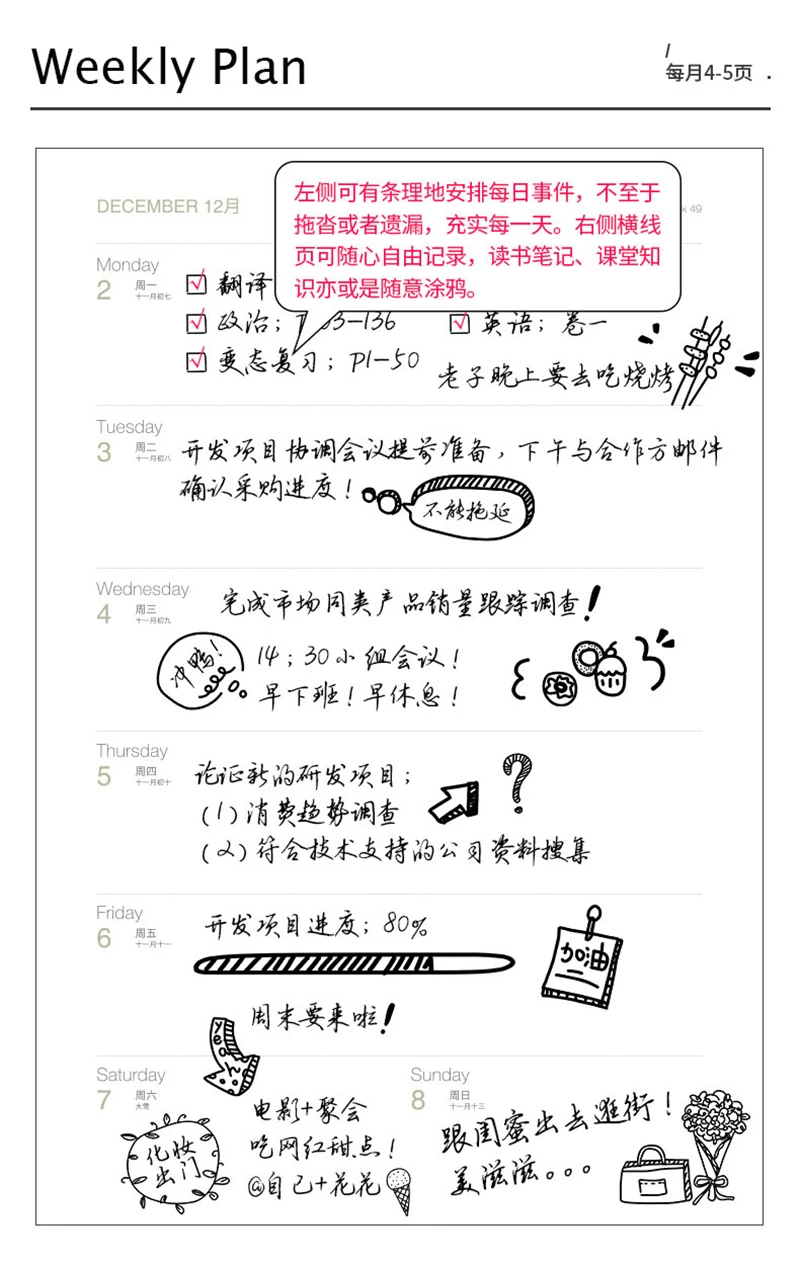 Weekly Plan
/
每月4-5页 .
DECEMBER 12月
49
左侧可有条理地安排每日事件，不至于
拖沓或者遗漏，充实每一天。右侧横线
页可随心自由记录，读书笔记、课堂知
识亦或是随意涂鸦。
Monday
2 周一
十一月初七
翻译
政治；
3-136
英语；卷一
变态复习；P1-50
老子晚上要去吃烧烤
Tuesday
3 周二
十一月初八
开发项目协调会议提前准备，下午与合作方邮件
确认采购进度！
不能拖延
Wednesday
4 周三
十一月初九
完成市场同类产品销量跟踪调查！
冲鸭！
14；30小组会议！
早下班！早休息！
Thursday
5 周四
十一月初十
论证新的研发项目；
（1）消费趋势调查
（2）符合技术支持的公司资料搜集
?
Friday
6 周五
十一月十一
开发项目进度；80%
加油
周末要来啦！
yeah
Saturday
7 周六
大雪
化妆
出门
电影+聚会
吃网红甜点！
@自己+花花
Sunday
8 周日
十一月十三
跟闺蜜出去逛街！
美滋滋。。。